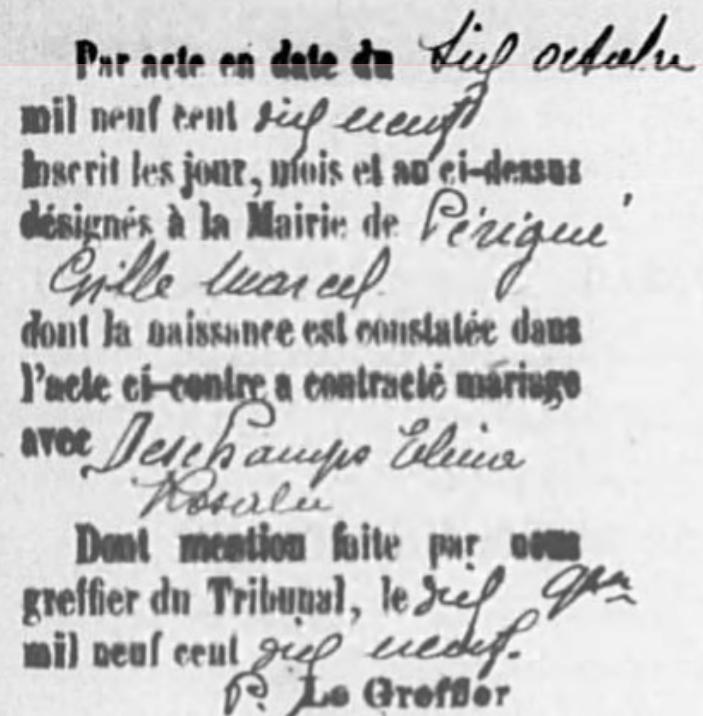 Par acte en date du dix octobre
mil neuf cent dix neuf
inscrit les jour, mois et an ci-dessus
désignés à la Mairie de Périgné
Gille Marcel
dont la naissance est constatée dans
l'acte ci-contre a contracté mariage
avec Deschamps Elina
Rosalie
Dont mention faite par nous
greffier du Tribunal, le dix 9bre
mil neuf cent dix neuf.
P. Le Greffier